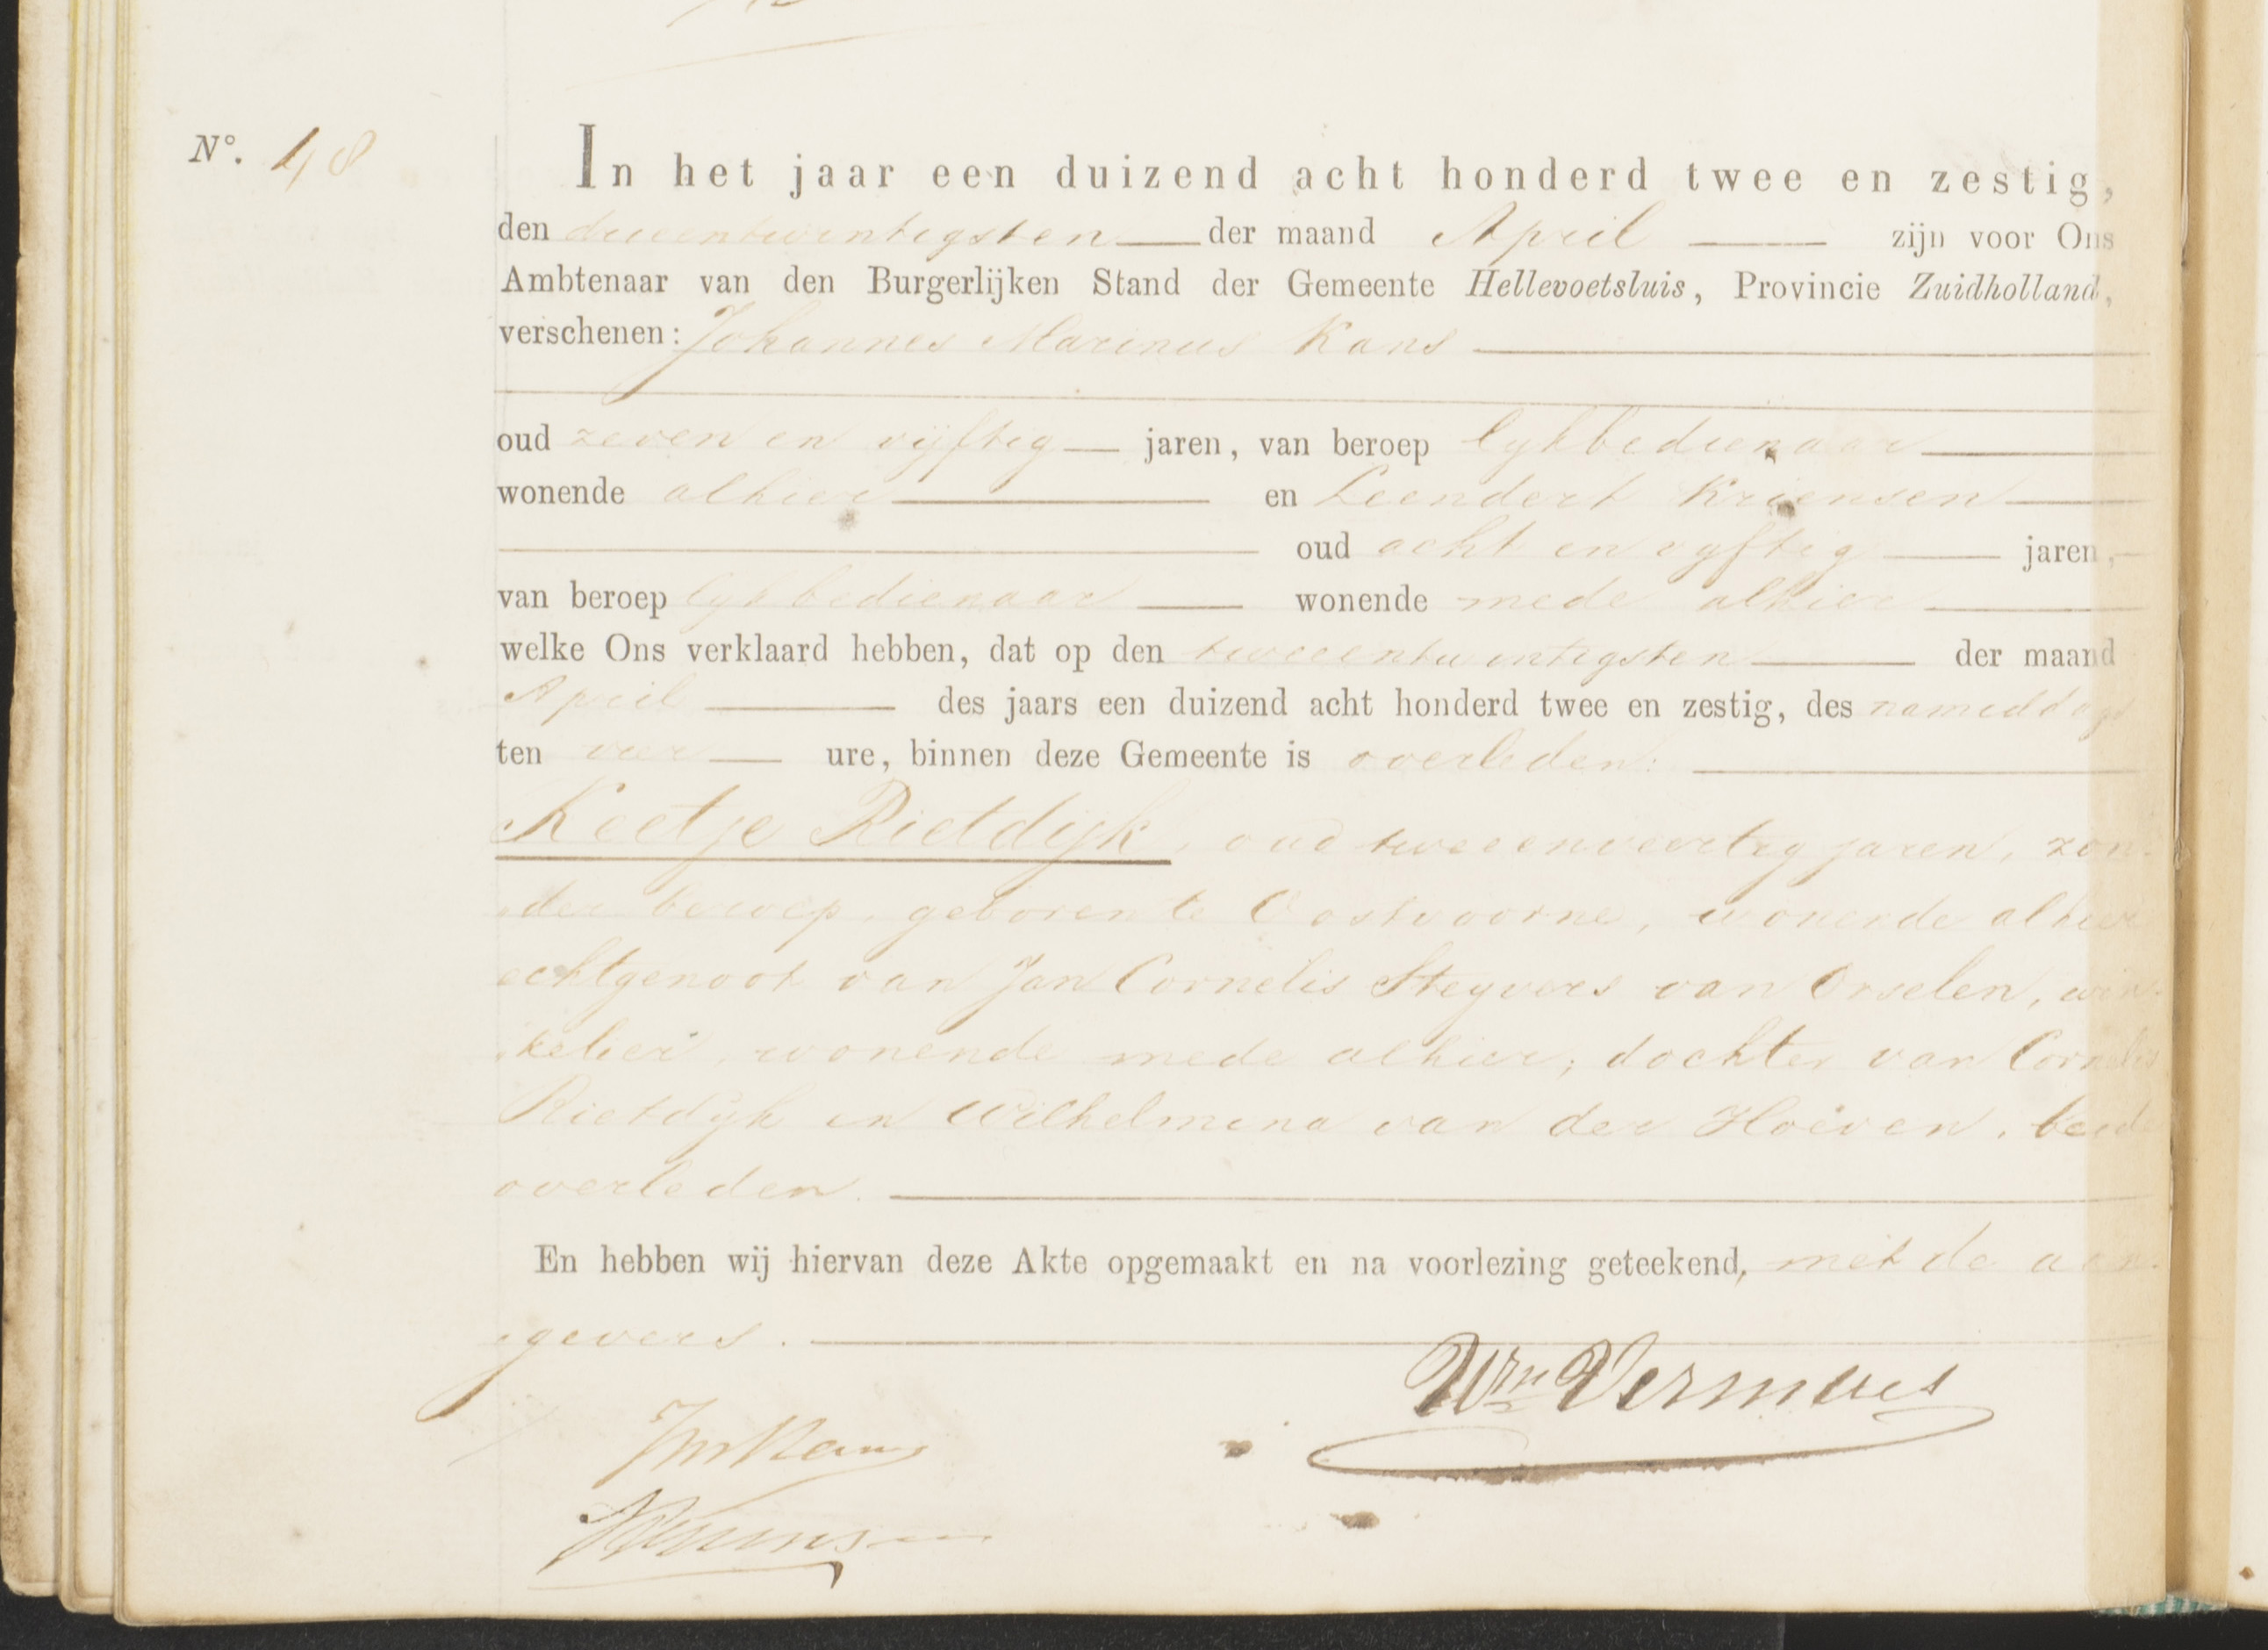 N°. 48
In het jaar een duizend acht honderd twee en zestig,
den drieentwintigsten der maand April zijn voor Ons
Ambtenaar van den Burgerlijken Stand der Gemeente Hellevoetsluis, Provincie Zuidholland,
verschenen: Johannes Marinus Kans
oud zeven en vijftig jaren, van beroep lykbedienaar
wonende alhier en Leendert Kriensen
oud acht en vyftig jaren,
van beroep lykbedienaar wonende mede alhier
welke Ons verklaard hebben, dat op den tweeentwintigsten der maand
April des jaars een duizend acht honderd twee en zestig, des namiddags
ten vier ure, binnen deze Gemeente is overleden:
Keetje Rietdijk, oud tweeenveertig jaren, zon-
der beroep, geboren te Oostvoorne, wonende alhier
echtgenoot van Jan Cornelis Steyvers van Orselen, win-
kelier, wonende mede alhier; dochter van Cornelis
Rietdyk en Wilhelmina van der Hoeven, beide
overleden.
En hebben wij hiervan deze Akte opgemaakt en na voorlezing geteekend, met de aan-
gevers.
Wm Vermaes
JMKans